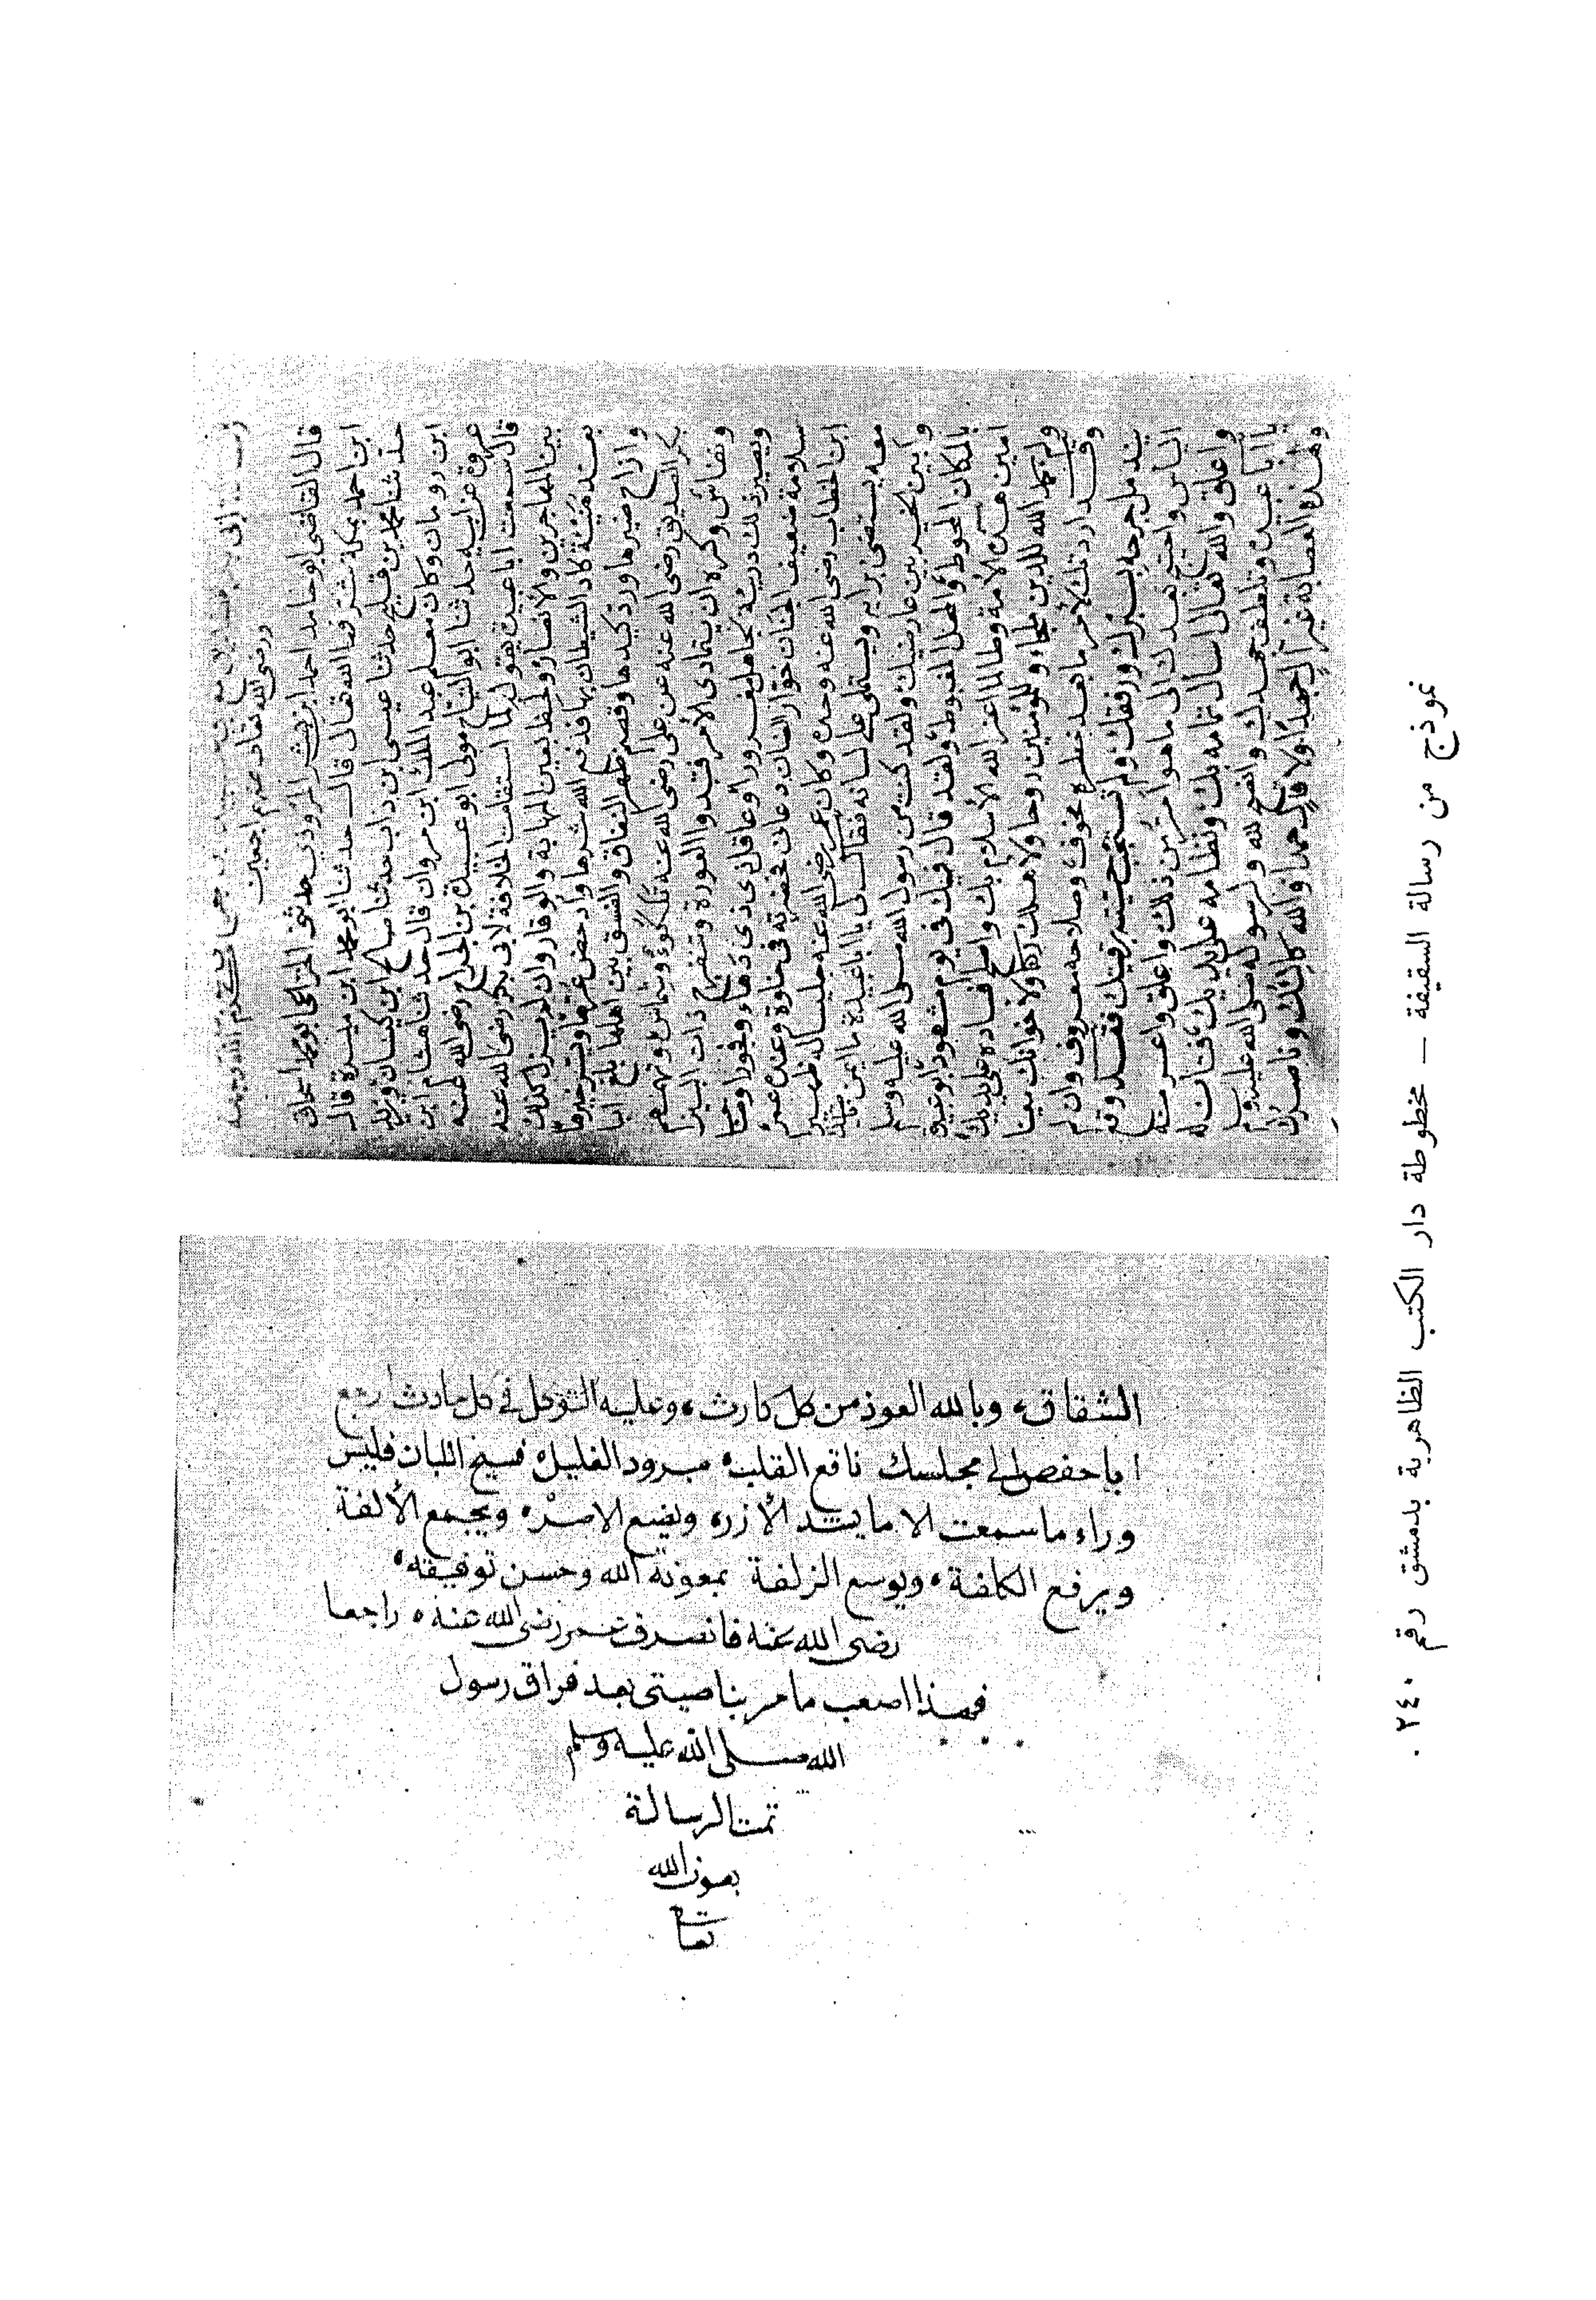 ورضى الله تعالى عنهم اجمعين
قال القاضى ابو حامد احمد ابن بشر المروروذى حدثنى
ابن احمد بمكة شرفها الله تعالى قال حدثنا ابو محمد ابن ميسرة قال
حدثنا محمد بن فليح حدثنا عيسى ابن داب حدثنا صالح ابن كيسان ويزيد
ابن رومان وكان معلم عبد الملك ابن مروان قال حدثنا هشام ابن
عروة عن ابيه حدثنا ابو النفاح مولى ابو عبيدة بن الجراح رضى الله عنه
قال سمعت ابا عبيدة يقول لما استقامت الخلافة لابى بكر رضى الله عنه
بين المهاجرين والانصار ولحظ بعين الهابة والوقار وان لم يزل كذلك
بعد هنيئة كاد الشيطان بها فدفع الله شرها وادحض عسرها ويسر خيرها
وازاح ضيرها ورد كيدها وقصم ظهر النفاق والفسق بين اهلها بلغ ابا
بكر الصديق رضى الله عنه عن على رضى الله عنه تلكؤ وشماس وتهمهم
ونفاس وكره ان يتمادى الامر فتبدوا العورة وتنفرج ذات البين
ويصير ذلك دربة لجاهل مغرور او عاقل ذى دهاء وفجور او صاحب
سلامة ضعيف الجنان خوار العنان دعانى فحضرته فى خلوة وعنده عمر
ابن الخطاب رضى الله عنه وحده وكان عمر رضى الله عنه جليسا له ظهيرا
معه يستضئ برايه ويستملى على لسانه فقال لى يا ابا عبيدة ما ايمن ناصيتك
وابين الخير بين عارضيك ولقد كنت من رسول الله صلى الله عليه وسلم
بالمكان المحوط والمحل المغبوط ولقد قال فيك فى يوم مشهود ابو عبيدة
امين هذه الامة وطالما اعز الله الاسلام بك واصلح فساده على يديك
ولم تزل للدين ملجاء وللمؤمنين روحا ولاهلك ركنا ولاخوانك مردا
وقد اردتك لامر ما بعده خطر مخوف وصلاحه معروف وان لم
يندمل جرحه بسبرك ورفقك ولم تجب حيته برقيتك فقد وقع
الياس واحتيج بعدك الى ما هو امر من ذلك واعلق واعسر منه
واغلق والله تعالى اسال تمامه بك ونظامه على يديك فتات له
يا ابا عبيدة وتلطف جهدك وانصح لله ولرسوله صلى الله عليه وسلم
وهذه العصابة غير آل جهدا ولا قال حمدا والله كالئك وناصرك
الشقاق، وبالله العوذ من كل كارث، وعليه التوكل فى كل حادث ارجع
ابا حفص الى مجلسك ناقع القلب، مبرود الغليل، فسيح اللبان فليس
وراء ما سمعت الا ما يشد الأزر، ويضع الاصر، ويجمع الألفة
ويرفع الكلفة، ويوسع الزلفة بمعونة الله وحسن توفيقه،
رضى الله عنه فانصرف عمر رضى الله عنه، راجعا
فهذا اصعب ما مر بناصيتى بعد فراق رسول
الله صلى الله عليه وسلم
تمت الرسالة
بعون الله
تعالى
نموذج من رسالة السقيفة – مخطوطة دار الكتب الظاهرية بدمشق رقم ٢٤٠ .